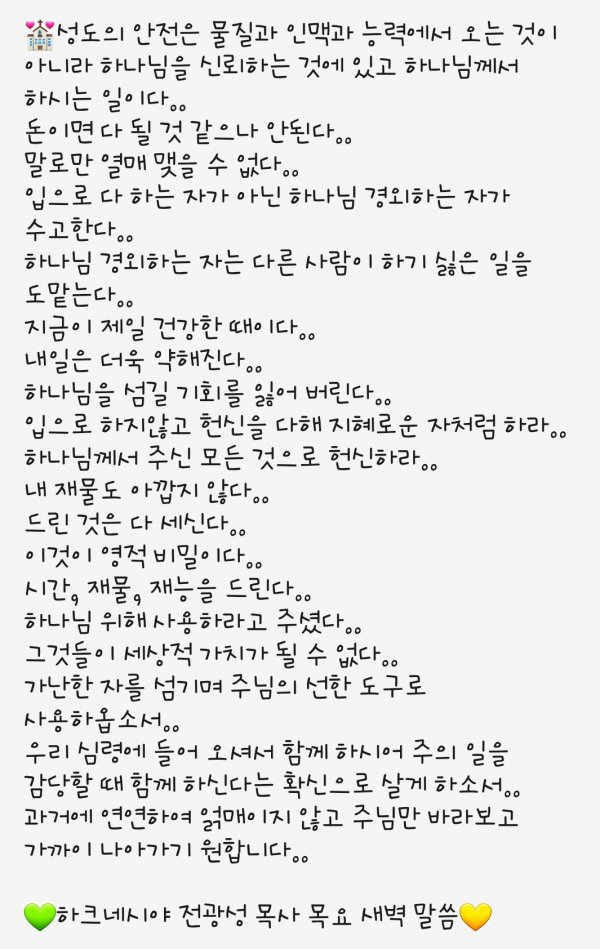 💒성도의 안전은 물질과 인맥과 능력에서 오는 것이
아니라 하나님을 신뢰하는 것에 있고 하나님께서
하시는 일이다。。
돈이면 다 될 것 같으나 안된다。。
말로만 열매 맺을 수 없다。。
입으로 다 하는 자가 아닌 하나님 경외하는 자가
수고한다。。
하나님 경외하는 자는 다른 사람이 하기 싫은 일을
도맡는다。。
지금이 제일 건강한 때이다。。
내일은 더욱 약해진다。。
하나님을 섬길 기회를 잃어 버린다。。
입으로 하지않고 헌신을 다해 지혜로운 자처럼 하라。。
하나님께서 주신 모든 것으로 헌신하라。。
내 재물도 아깝지 않다。。
드린 것은 다 세신다。。
이것이 영적 비밀이다。。
시간, 재물, 재능을 드린다。。
하나님 위해 사용하라고 주셨다。。
그것들이 세상적 가치가 될 수 없다。。
가난한 자를 섬기며 주님의 선한 도구로
사용하옵소서。。
우리 심령에 들어 오셔서 함께 하시어 주의 일을
감당할 때 함께 하신다는 확신으로 살게 하소서。。
과거에 연연하여 얽매이지 않고 주님만 바라보고
가까이 나아가기 원합니다。。
💚하크네시야 전광성 목사 목요 새벽 말씀💛